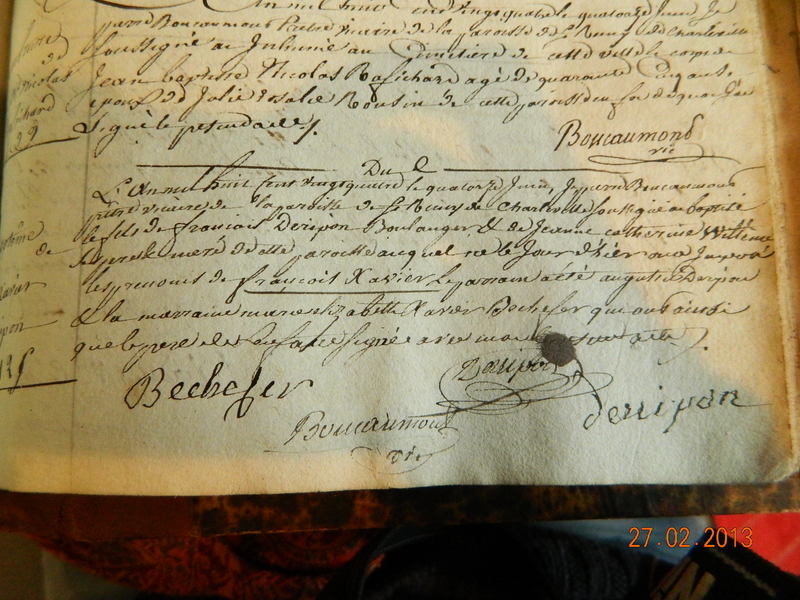 L'an mil huit cent vingt quatre le quatorze Juin Je
pierre Boucaumont Prêtre vicaire de la paroisse de St Remy de Charleville
soussigné ai Inhumé au Cimetière de cette ville le corps de
Jean baptiste Nicolas agé de quarante Cinq ans
époux de Julie rosalie de cette paroisse en foi de quoi J'ai
signé le présent acte.
Boucaumont
vic
Du d
L'an mil huit cent vingt quatre le quatorze Juin, Je pierre Boucaumont
prêtre vicaire de la paroisse de St Remy de Charleville soussigné ai baptisé
le fils de françois Deripon Boulanger & de Jeanne catherine
de cette paroisse auquel né le Jour d'hier on a Imposé
les prenoms de françois Xavier Le parrain a été augustin Deripon
& la marraine marie Elizabeth Xavier Bechefer qui ont ainsi
que le pere de l'enfant signé avec moi le présent acte.
Bechefer
Deripon
derripon
Boucaumont
vic
27.02.2013